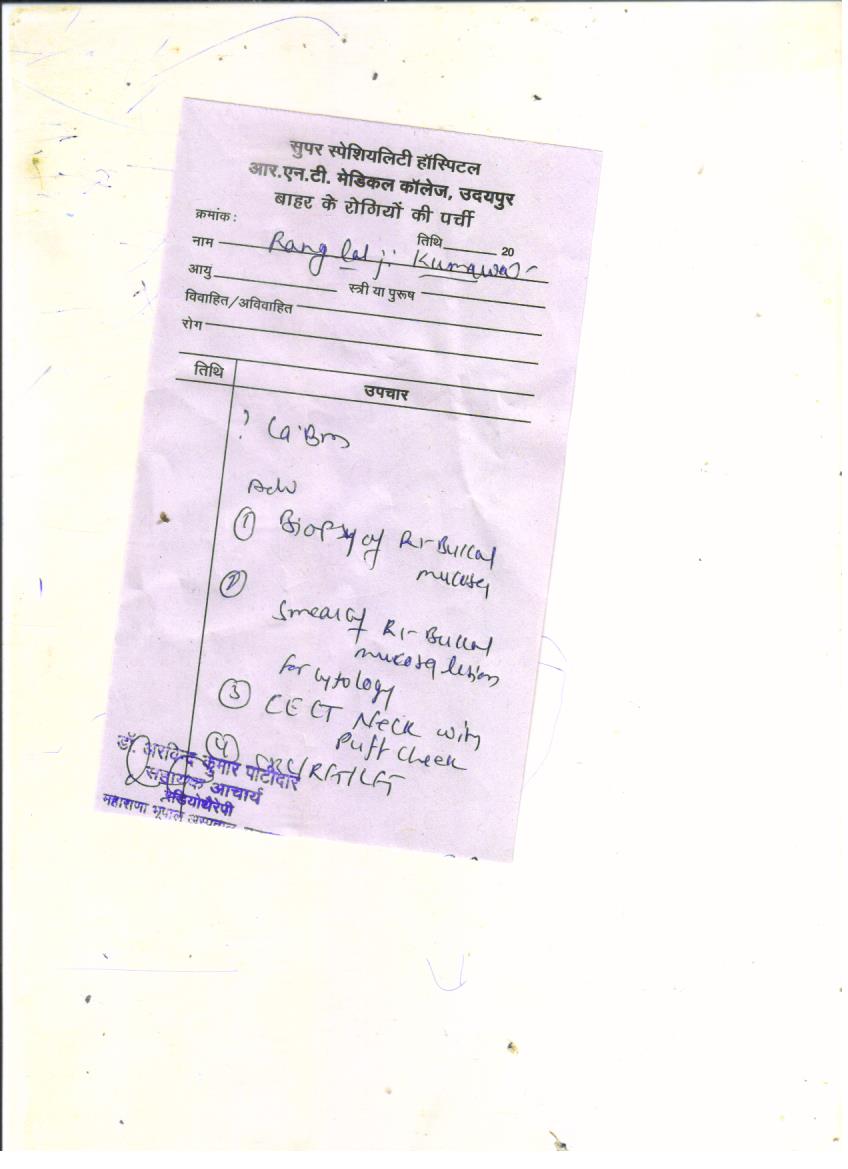 सुपर स्पेशियलिटी हॉस्पिटल
आर.एन.टी. मेडिकल कॉलेज, उदयपुर
बाहर के रोगियों की पर्ची
क्रमांक:
तिथि 20
नाम Rang lal ji Kumawat
आयु स्त्री या पुरूष
विवाहित/अविवाहित
रोग
तिथि उपचार
? Ca Bm
Adv
① Biopsy of Rt-Buccal
mucosa
②
Smear of Rt-Buccal
mucosa lesion
for cytology
③ CECT Neck with
Puff cheek
④ CBC/RFT/LFT
डॉ. अरविन्द कुमार पाटीदार
सहायक आचार्य
रेडियोथैरेपी
महाराणा भूपाल अस्पताल